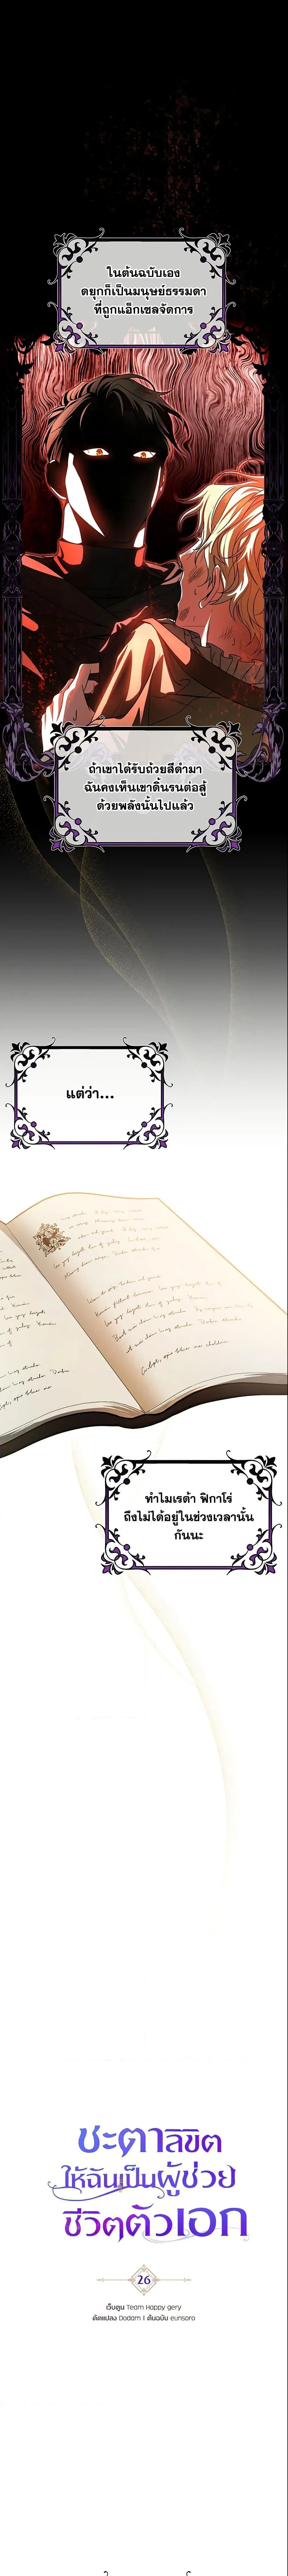 ในต้นฉบับเอง
ดยุกก็เป็นมนุษย์ธรรมดา
ที่ถูกแอ็กเซลจัดการ
ถ้าเขาได้รับถ้วยสีดำมา
ฉันคงเห็นเขาดิ้นรนต่อสู้
ด้วยพลังนั้นไปแล้ว
แต่ว่า...
ทำไมเรด้า ฟิกาโร่
ถึงไม่ได้อยู่ในช่วงเวลานั้น
กันนะ
ชะตาลิขิต
ให้ฉันเป็นผู้ช่วย
ชีวิตตัวเอก
26
เว็บตูน Team Happy gery
ดัดแปลง Dodam | ต้นฉบับ eunsoro